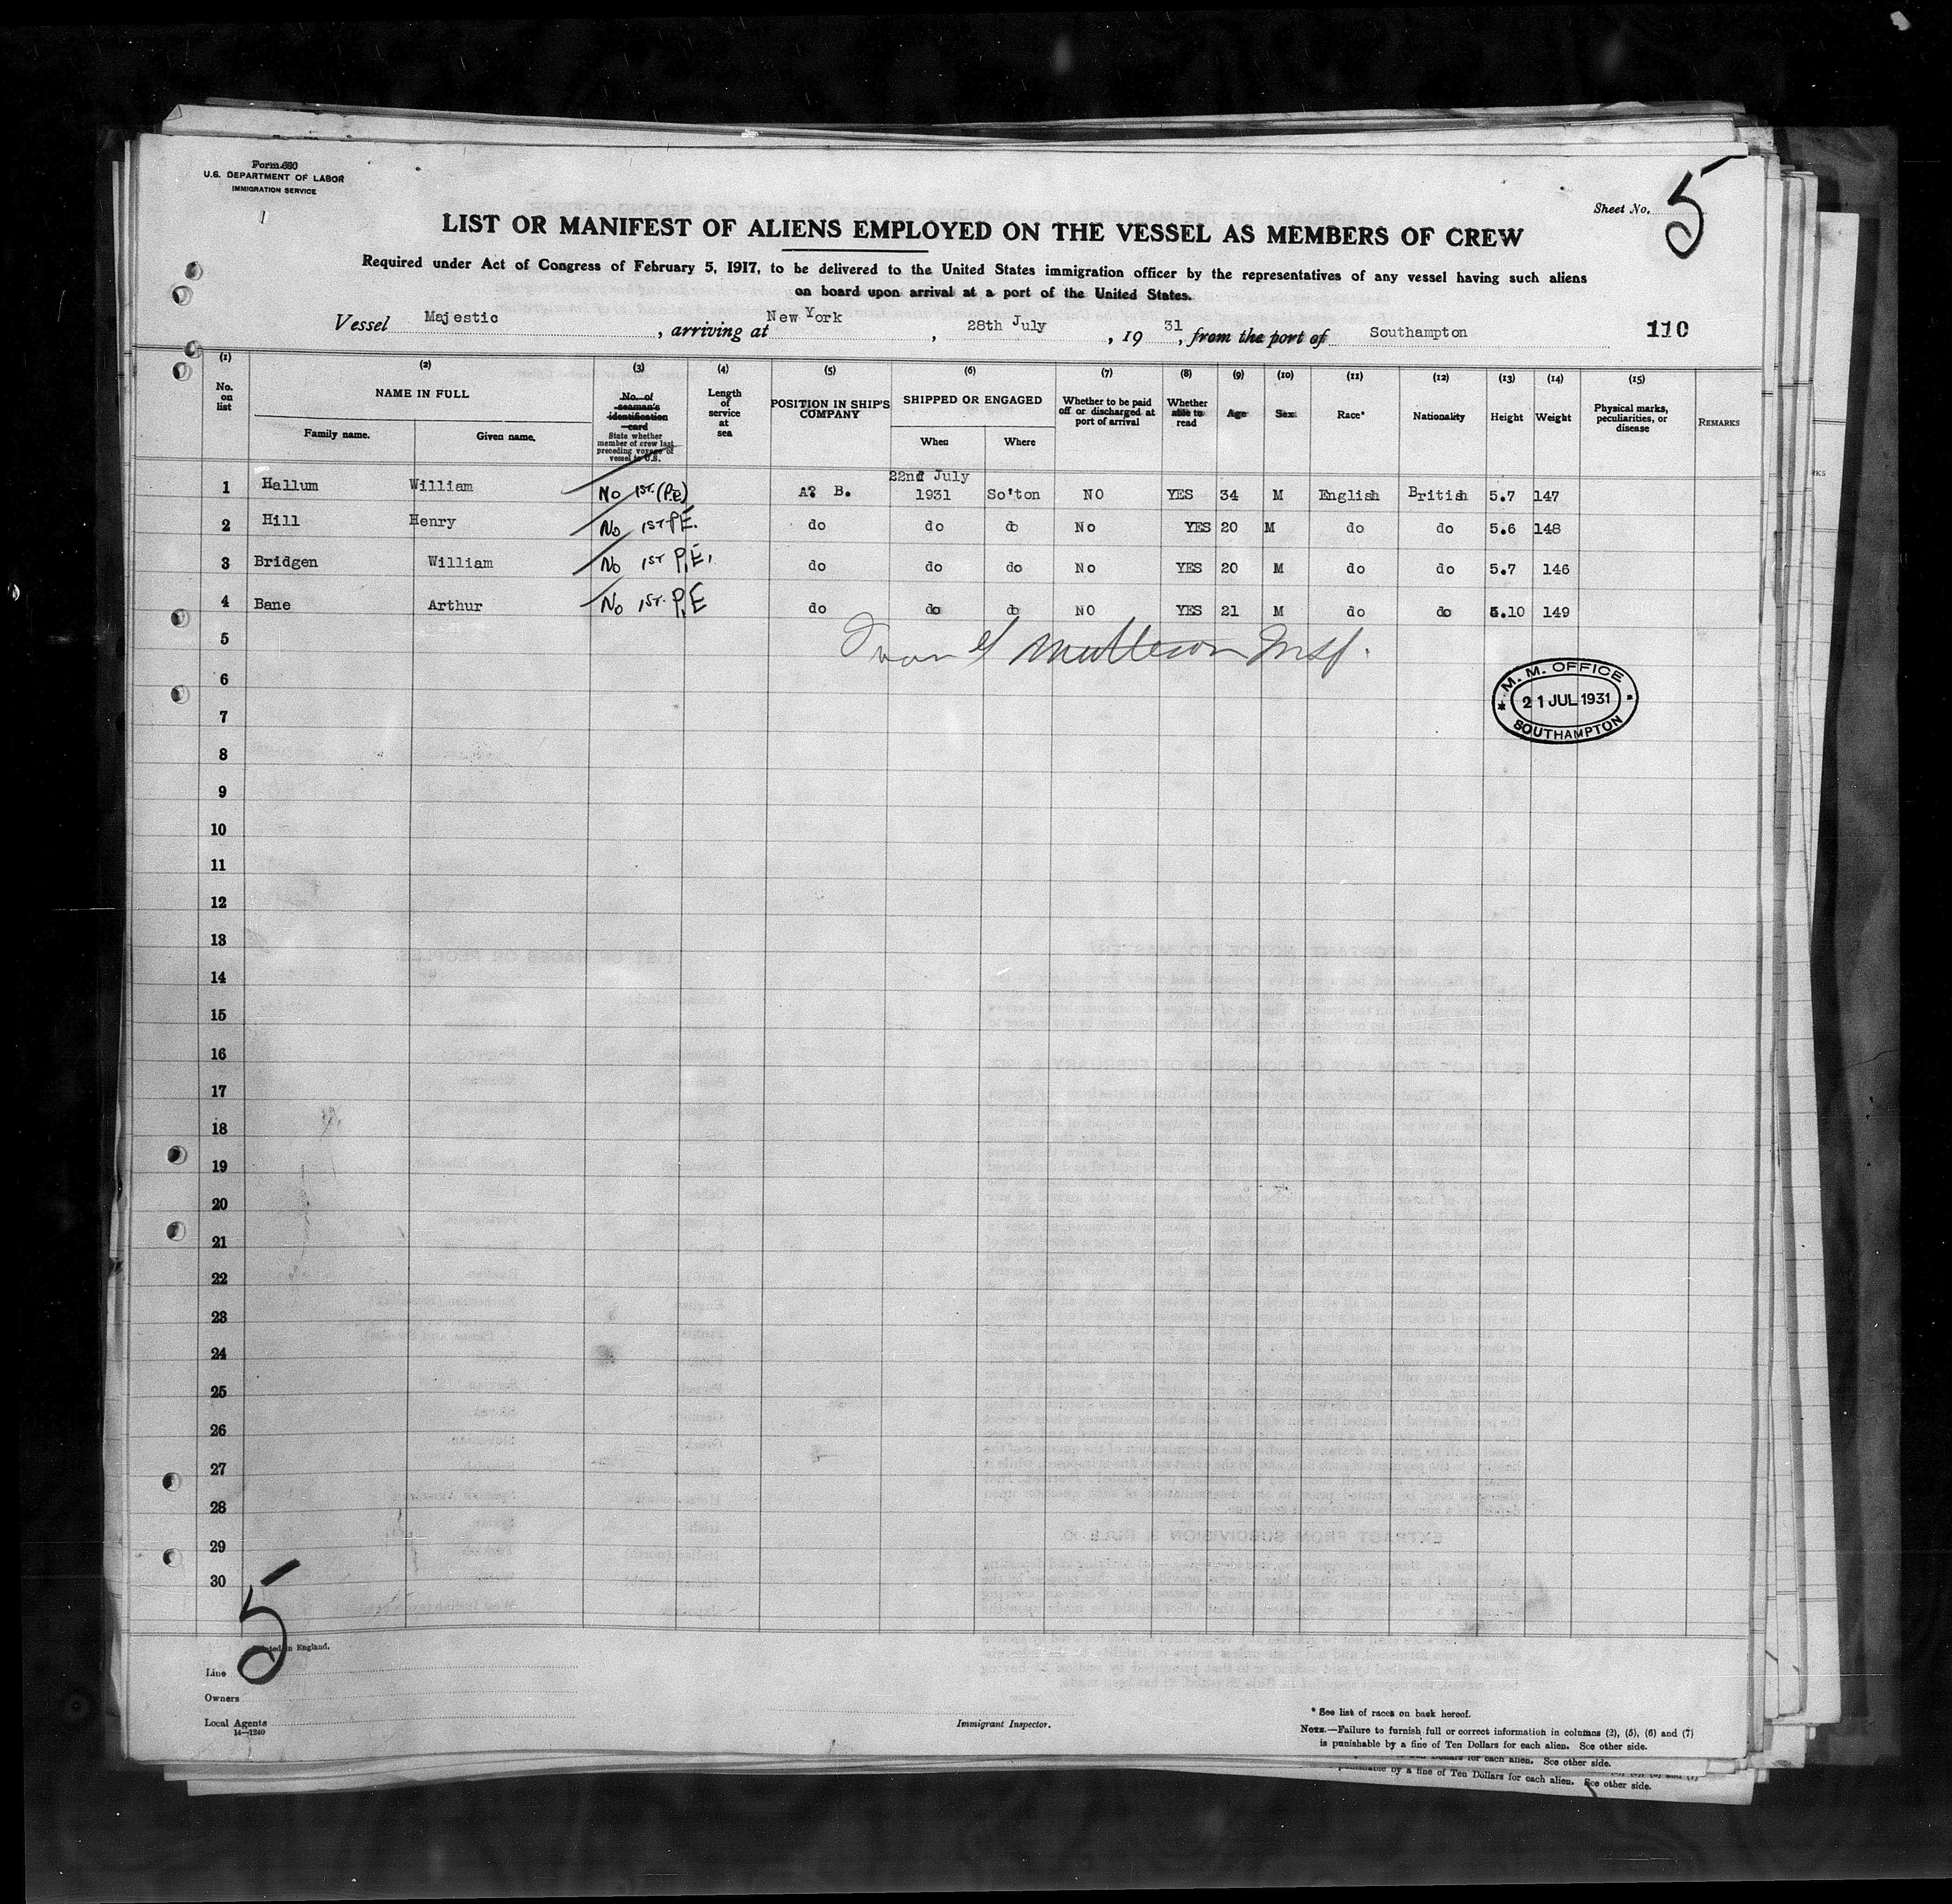 Form 680
U.S. DEPARTMENT OF LABOR
IMMIGRATION SERVICE
Sheet No. 5
LIST OR MANIFEST OF ALIENS EMPLOYED ON THE VESSEL AS MEMBERS OF CREW
Required under Act of Congress of February 5, 1917, to be delivered to the United States immigration officer by the representatives of any vessel having such aliens
on board upon arrival at a port of the United States.
Vessel Majestic, arriving at New York, 28th July, 19 31, from the port of Southampton 110
(1) (2) (3) (4) (5) (6) (7) (8) (9) (10) (11) (12) (13) (14) (15)
No. on list
NAME IN FULL
Family name. Given name.
No. of seaman's identification card
State whether member of crew last preceding voyage of vessel to U.S.
Length of service at sea
POSITION IN SHIP'S COMPANY
SHIPPED OR ENGAGED
When Where
Whether to be paid off or discharged at port of arrival
Whether able to read
Age
Sex
Race*
Nationality
Height
Weight
Physical marks, peculiarities, or disease
REMARKS
1 Hallum William No 1ST. (P.E) A? B. 22nd July 1931 So'ton NO YES 34 M English British 5.7 147
2 Hill Henry No 1ST P.E. do do do No YES 20 M do do 5.6 148
3 Bridgen William No 1ST P.E. do do do No YES 20 M do do 5.7 146
4 Bane Arthur No 1ST. P.E do do do NO YES 21 M do do 5.10 149
5
6
7
8
9
10
11
12
13
14
15
16
17
18
19
20
21
22
23
24
25
26
27
28
29
30
M. M. OFFICE
21 JUL 1931
SOUTHAMPTON
5
Printed in England.
Line
Owners
Local Agents
14—1240
Immigrant Inspector.
* See list of races on back hereof.
NOTE.—Failure to furnish full or correct information in columns (2), (5), (6) and (7)
is punishable by a fine of Ten Dollars for each alien. See other side.
for each alien. See other side.
punishable by a fine of Ten Dollars for each alien. See other side.